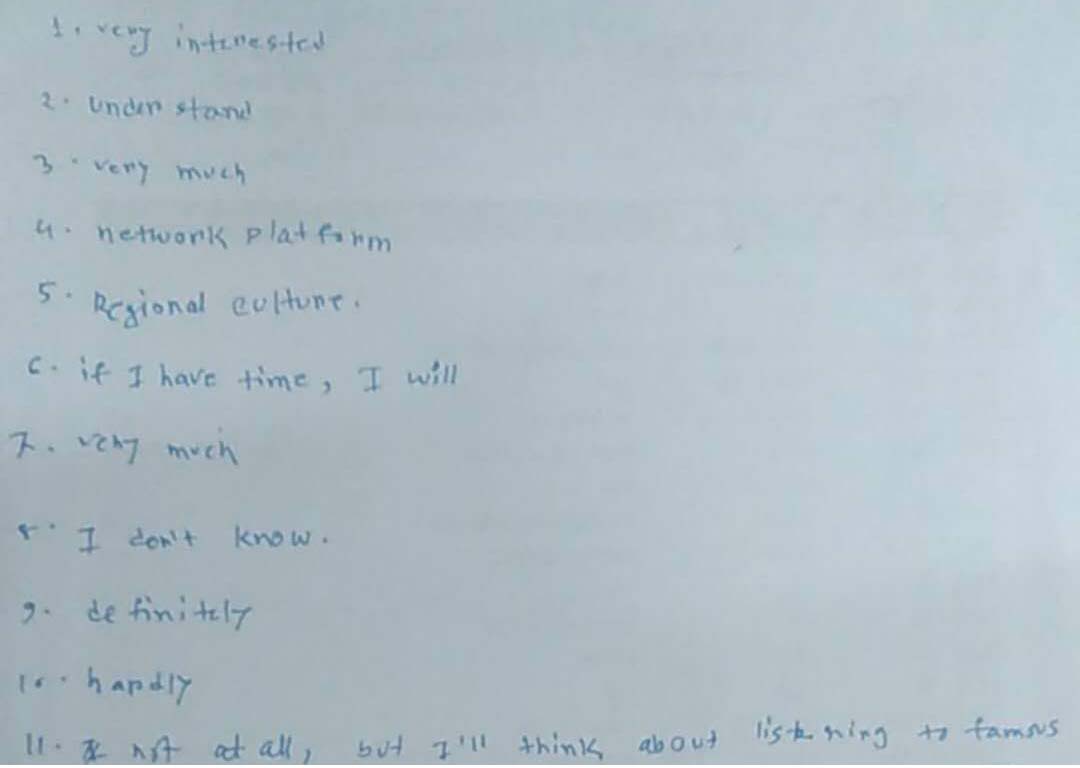 1. very interested
2. understand
3. very much
4. network platform
5. Regional culture.
6. if I have time, I will
7. very much
8. I don't know.
9. definitely
10. hardly
11. not at all, but I'll think about listening to famous